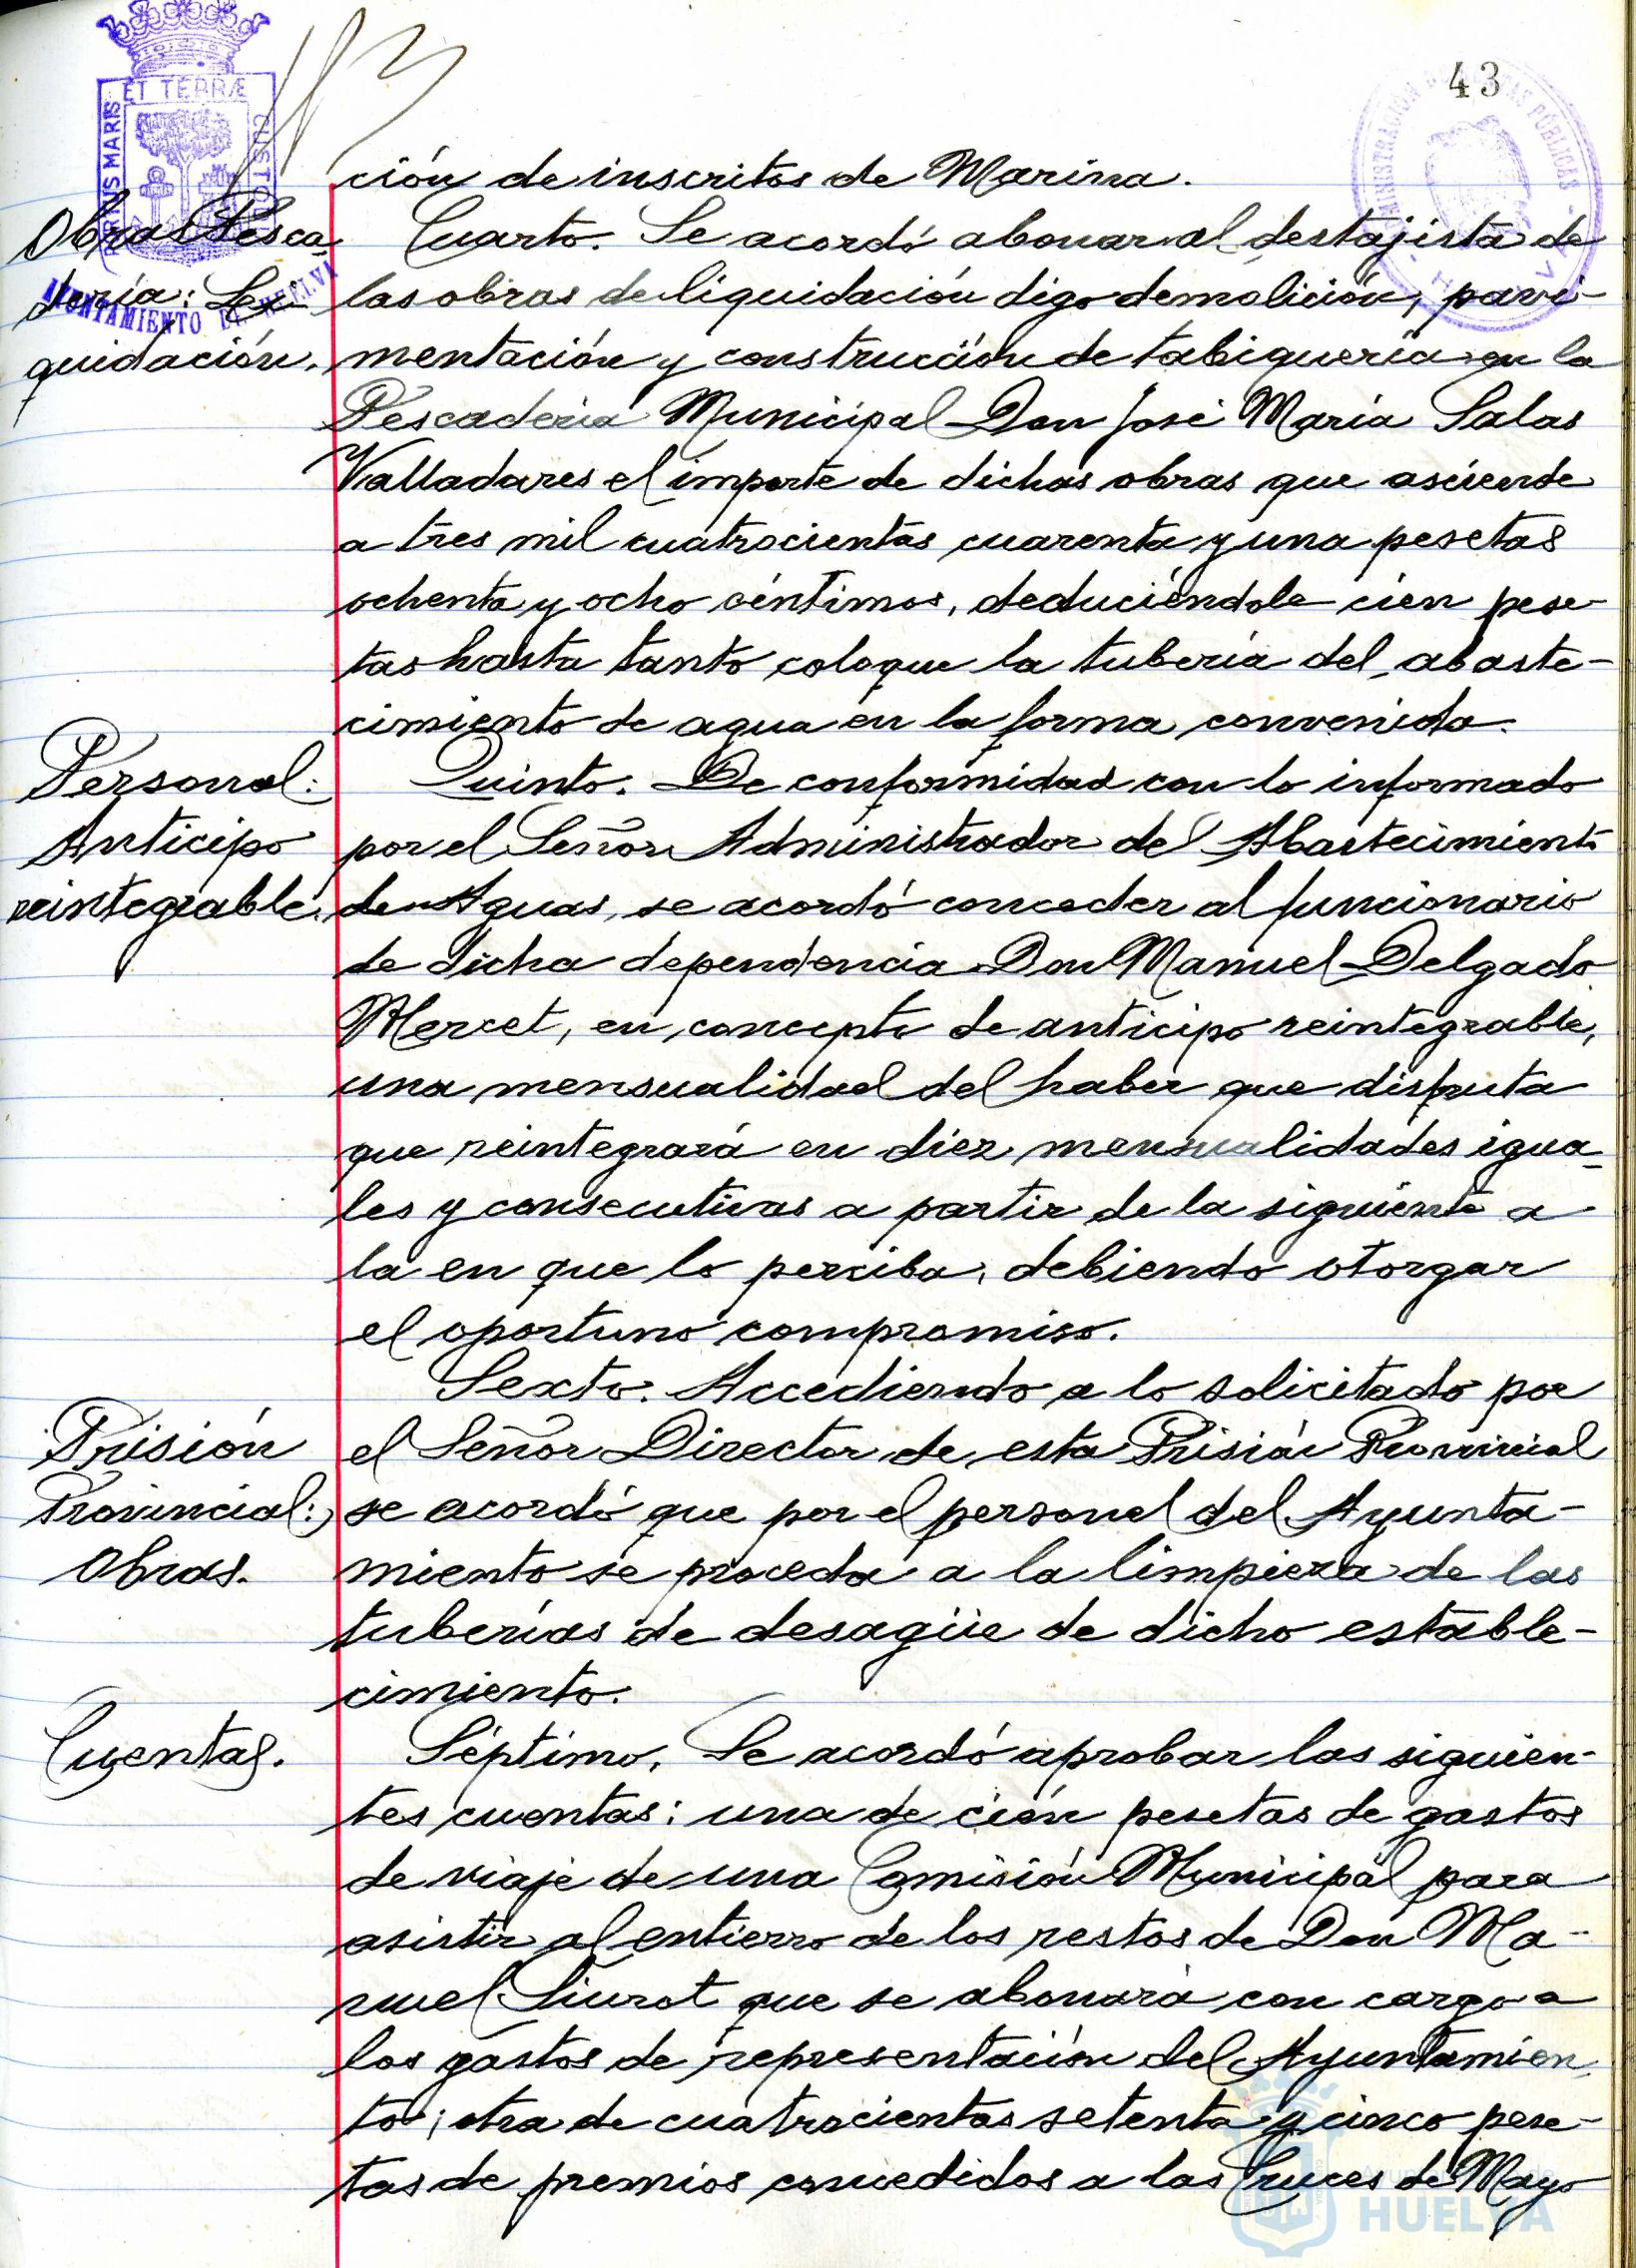 43
PORTUS MARIS ET TERRÆ CUSTODIA
AYUNTAMIENTO DE HUELVA
ción de inscritos de Marina.
Obras Pesca
dería: Li
quidación.
Cuarto. Se acordó abonar al destajista de
las obras de liquidación digo demolición, pavi-
mentación y construcción de tabiquería en la
Pescadería Municipal Don José María Salas
Valladares el importe de dichas obras que asciende
a tres mil cuatrocientas cuarenta y una pesetas
ochenta y ocho céntimos, deduciéndole cien pese-
tas hasta tanto coloque la tubería del abaste-
cimiento de agua en la forma convenida.
Personal:
Anticipo
reintegrable.
Quinto. De conformidad con lo informado
por el Señor Administrador del Abastecimiento
de Aguas, se acordó conceder al funcionario
de dicha dependencia Don Manuel Delgado
Mercet, en concepto de anticipo reintegrable,
una mensualidad del haber que disfruta
que reintegrará en diez mensualidades igua-
les y consecutivas a partir de la siguiente a
la en que lo perciba, debiendo otorgar
el oportuno compromiso.
Prisión
Provincial:
Obras.
Sexto. Accediendo a lo solicitado por
el Señor Director de esta Prisión Provincial
se acordó que por el personal del Ayunta-
miento se proceda a la limpieza de las
tuberías de desagüe de dicho estable-
cimiento.
Cuentas.
Séptimo. Se acordó aprobar las siguien-
tes cuentas: una de cien pesetas de gastos
de viaje de una Comisión Municipal para
asistir al entierro de los restos de Don Ma-
nuel Siurot que se abonará con cargo a
los gastos de representación del Ayuntamien-
to; otra de cuatrocientas setenta y cinco pese-
tas de premios concedidos a las Cruces de Mayo
HUELVA